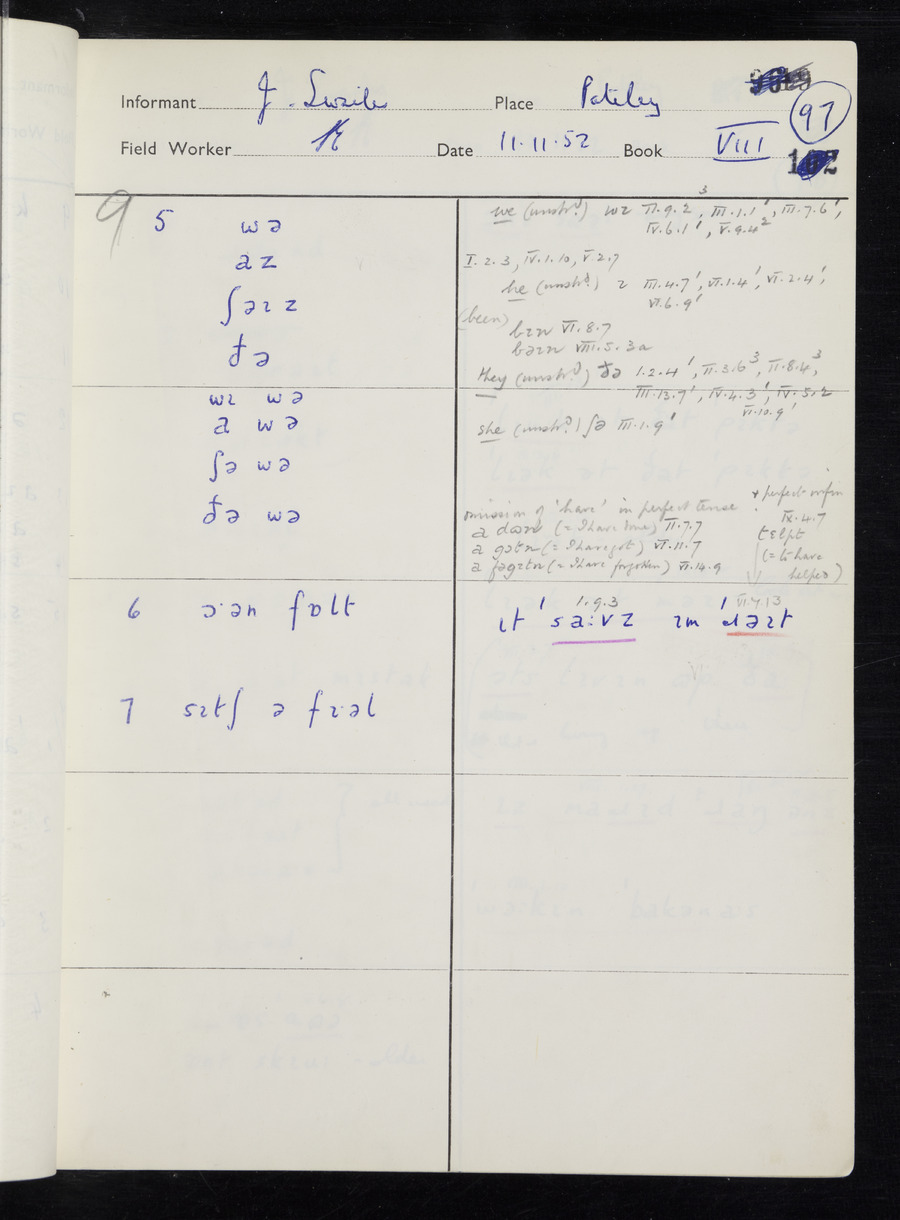 Informant J. Place Pateley 97
Field Worker Date 11.11.52 Book VIII
9 5 wə
az
ʃəɪ z
ðə
wɪ wə
a wə
ʃə wə
ðə wə
6 ɔ·ən fɒlt
7 sɪtʃ ə fɪ·əl
we (unstr.d) wɪ II.9.2³, III.1.1', III.7.6',
IV.6.1', V.9.4²
I.2.3, IV.1.10, V.2.7
he (unstr.d) ɪ III.4.7', VI.1.4', VI.2.4',
VI.6.9'
(been)
bɪn VI.8.7
bəɪn VIII.5.3a
they (unstr.d) ðə 1.2.4', II.3.6³, II.8.4³,
III.13.9', IV.4.3', IV.5.2
VI.10.9'
she (unstr.d) ʃə III.1.9'
omission of 'have' in perfect tense
+ perfect infin
IX.4.7
a dɒn (= I have done) II.7.7
a gɔtn (= I have got) VI.11.7
a fəgɪtn (= I have forgotten) VI.14.9
tɛlpt
(= to have
helped)
1.9.3 VI.7.13
ɪt 'sa:vz ɪm 'dəɪt